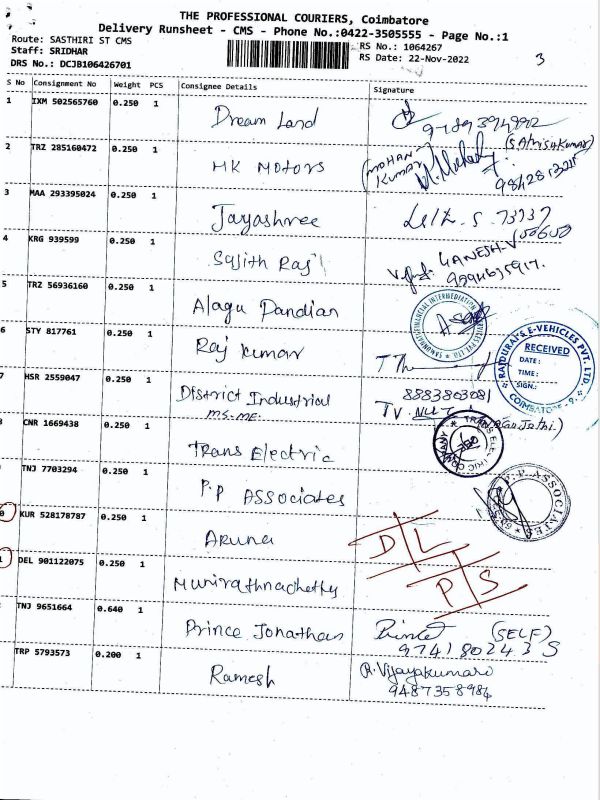 THE PROFESSIONAL COURIERS, Coimbatore
Delivery Runsheet - CMS - Phone No.:0422-3505555 - Page No.:1
Route: SASTHIRI ST CMS
Staff: SRIDHAR
DRS No.: DCJB106426701
RS No.: 1064267
RS Date: 22-Nov-2022
3
S No Consignment No Weight PCS Consignee Details Signature
1 IXM 502565760 0.250 1 Dream Land
2 TRZ 285160472 0.250 1 MK MOTORS (MOHAN
3 MAA 293395024 0.250 1 Jayashree
4 KRG 939599 0.250 1 Sajith Raj GANESH.V
5 TRZ 56936160 0.250 1 Alagu Pandian
6 STY 817761 0.250 1 Raj Kumar
RAIDURAI'S E-VEHICLES PVT. LTD.
RECEIVED
DATE:
TIME:
SIGN.:
COIMBATORE-9
7 HSR 2559047 0.250 1 District Industrial 8883803081
MS-ME.
CNR 1669438 0.250 1 Trans Electric
TRANS ELECTRIC COMPANY
TNJ 7703294 0.250 1 P.P ASSOCIATES
P.P ASSOCIATES
0 KUR 528178787 0.250 1 Aruna D L
1 DEL 901122075 0.250 1 Munirathnachetty P S
TNJ 9651664 0.640 1 Prince Jonathan Prince (SELF)
TRP 5793573 0.200 1 Ramesh R. Vijayakumari
9487358984